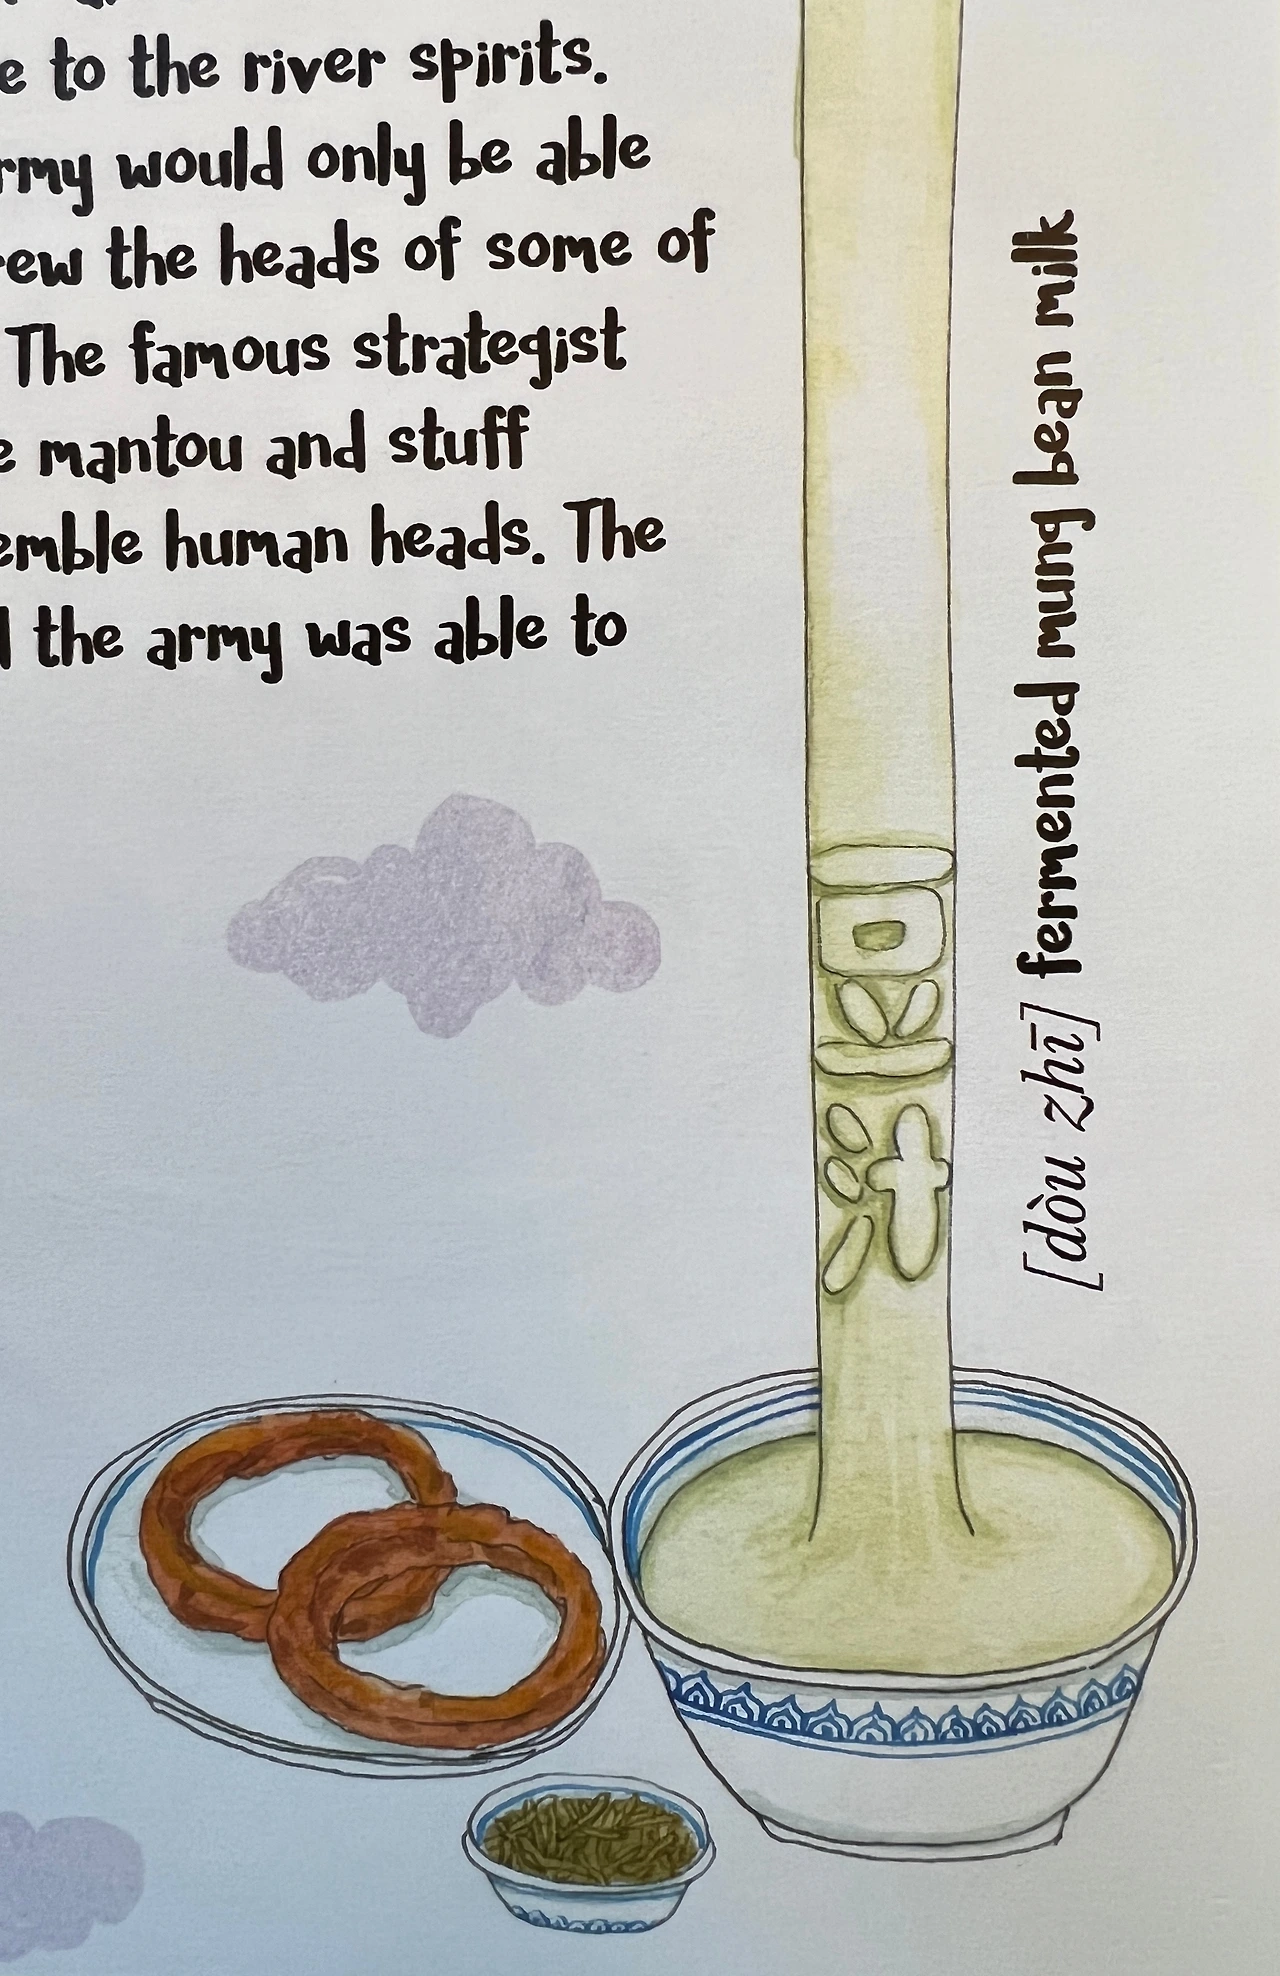 to the river spirits.
would only be able
the heads of some of
The famous strategist
mantou and stuff
human heads. The
the army was able to
豆汁
[dòu zhī] fermented mung bean milk